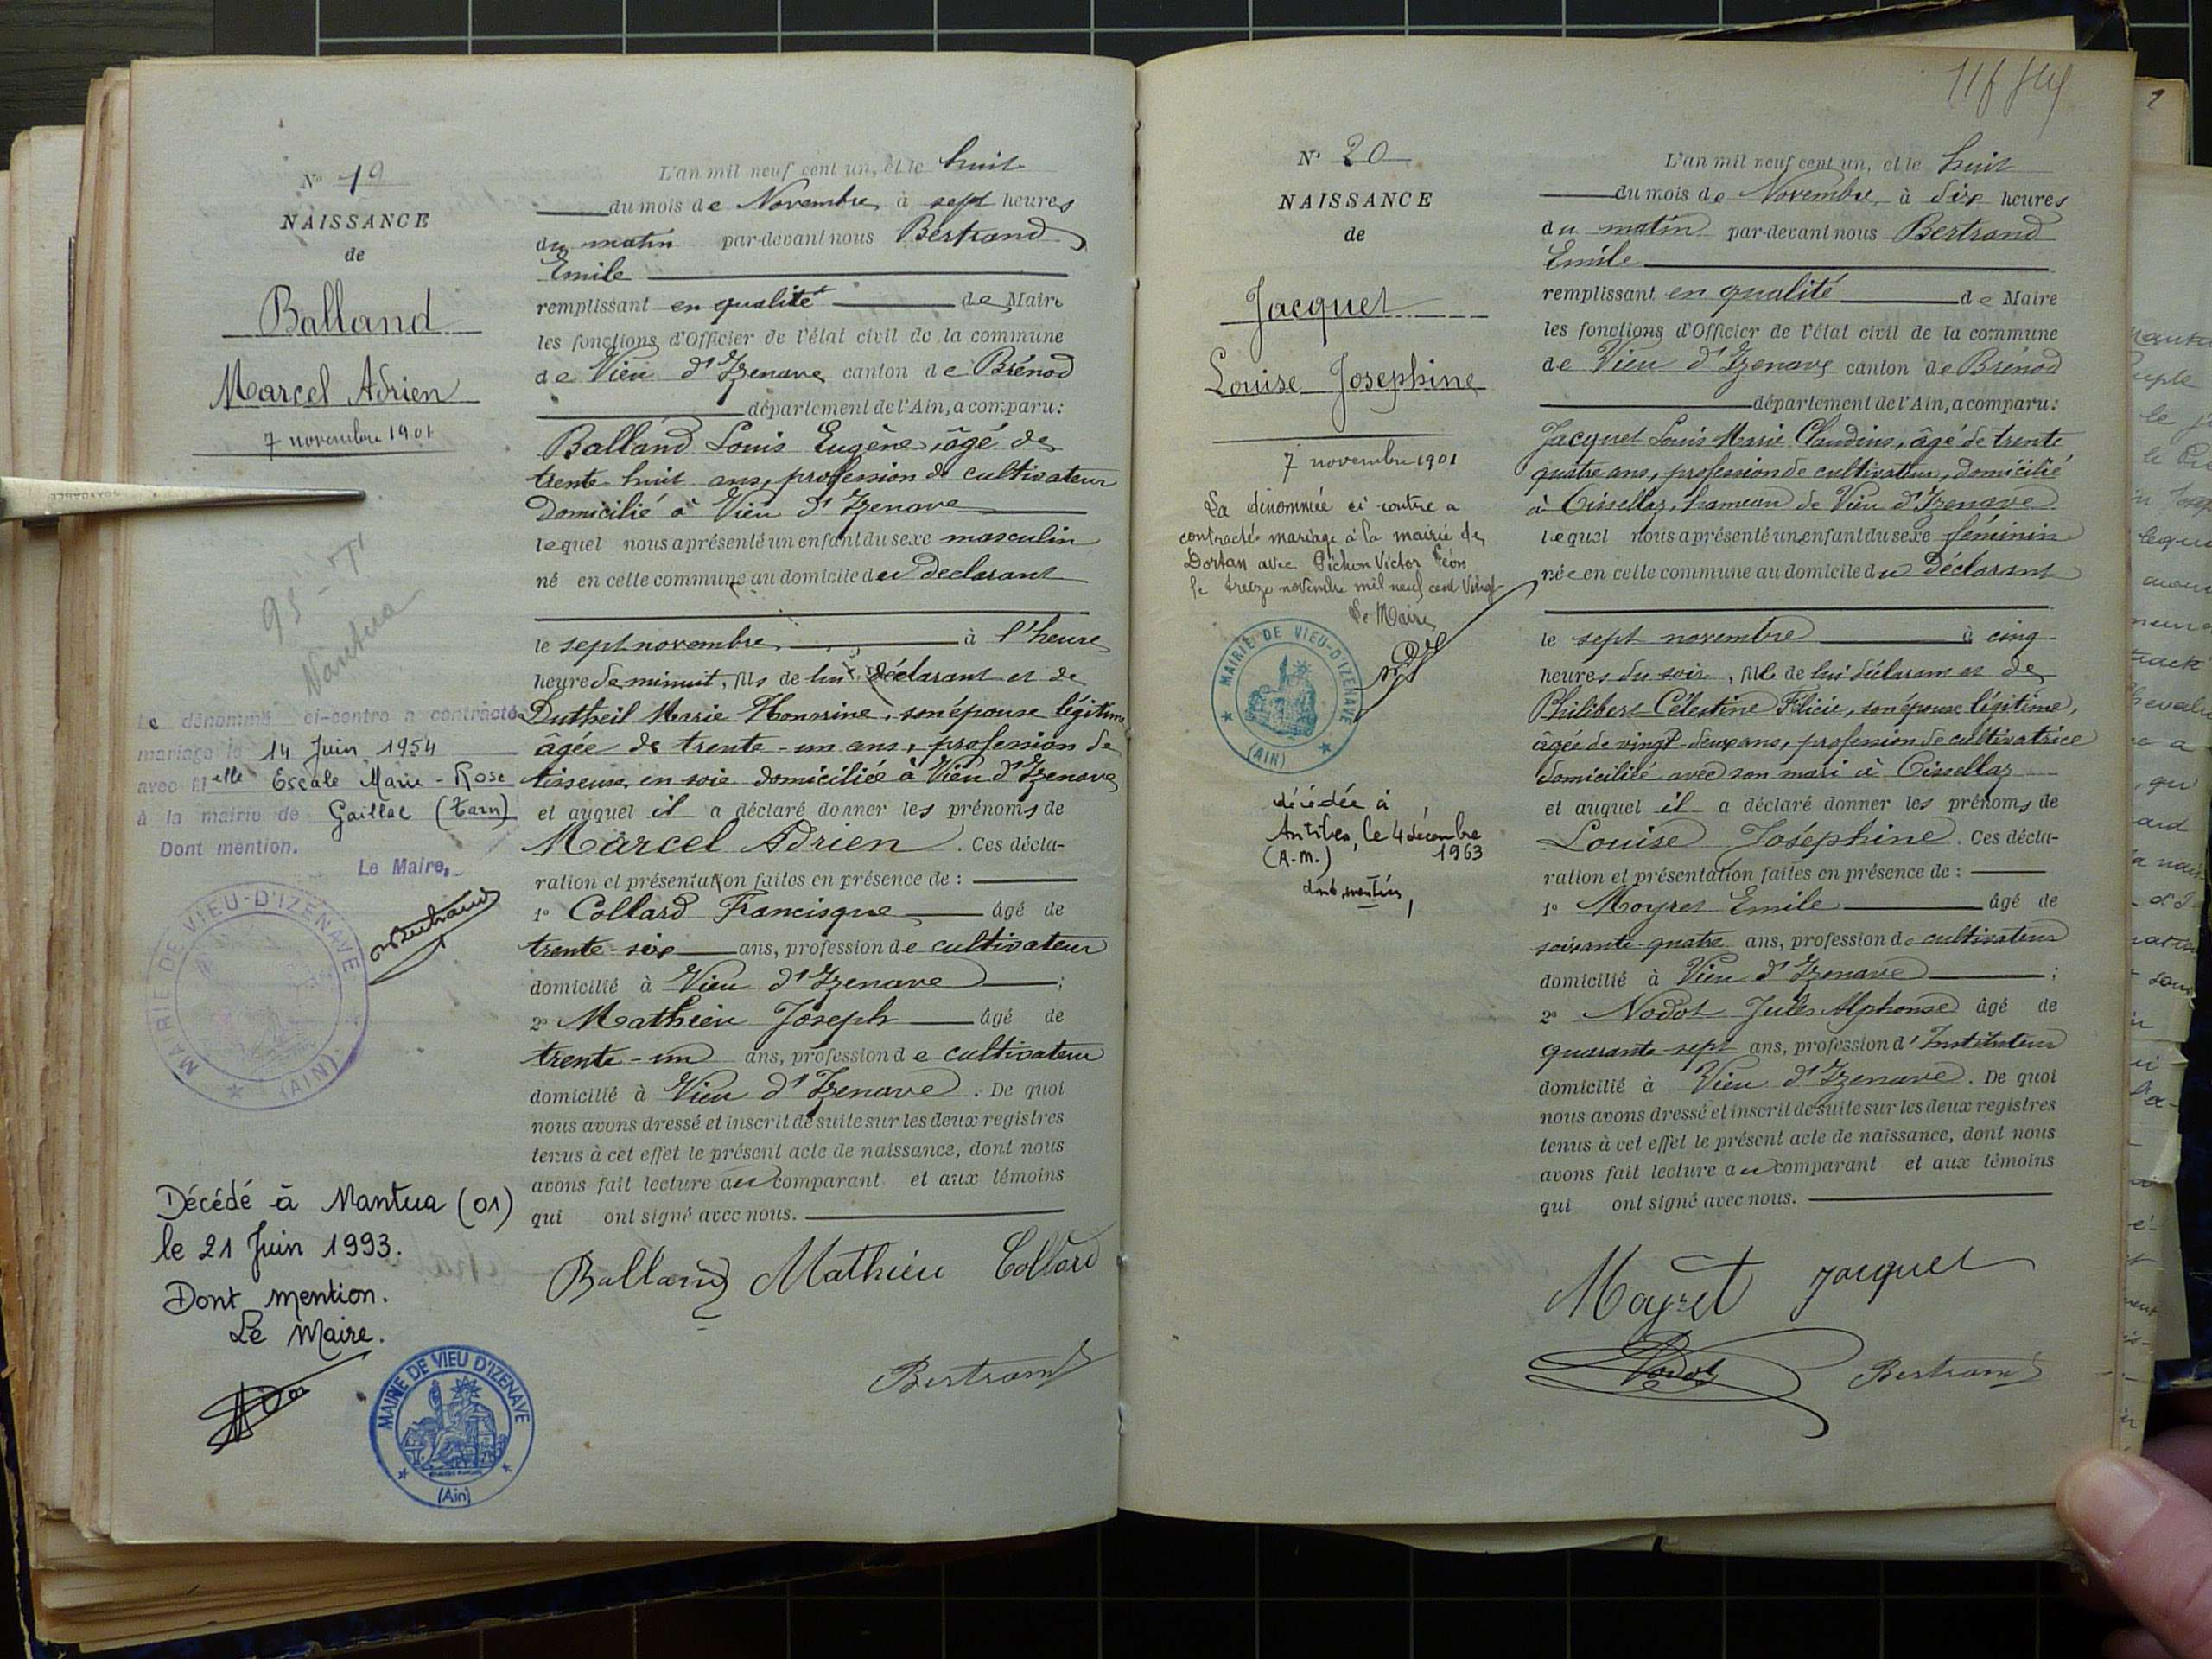 N° 19
NAISSANCE
de
Balland
Marcel Adrien
7 novembre 1901
95 - T
Nantua
Le dénommé ci-contre a contracté
mariage le 14 Juin 1954
avec Melle Escale Marie-Rose
à la mairie de Gaillac (Tarn)
Dont mention.
Le Maire,
Bertrand
MAIRIE DE VIEU-D'IZENAVE
(AIN)
Décédé à Nantua (01)
le 21 Juin 1993.
Dont mention.
Le Maire.
MAIRIE DE VIEU D'IZENAVE
(Ain)
L'an mil neuf cent un, et le huit
du mois de Novembre, à sept heures
du matin par-devant nous Bertrand
Emile
remplissant en qualité de Maire
les fonctions d'Officier de l'état civil de la commune
de Vieu d'Izenave canton de Brénod
département de l'Ain, a comparu:
Balland Louis Eugène, âgé de
trente-huit ans, profession de cultivateur
domicilié à Vieu d'Izenave
lequel nous a présenté un enfant du sexe masculin
né en cette commune au domicile du déclarant
le sept novembre, à l'heure
heure de minuit, fils de lui déclarant et de
Dutheil Marie Honorine, son épouse légitime
âgée de trente-un ans, profession de
tisseuse en soie domiciliée à Vieu d'Izenave
et auquel il a déclaré donner les prénoms de
Marcel Adrien. Ces décla-
ration et présentation faites en présence de :
1° Collard Francisque âgé de
trente-six ans, profession de cultivateur
domicilié à Vieu d'Izenave ;
2° Mathieu Joseph âgé de
trente-un ans, profession de cultivateur
domicilié à Vieu d'Izenave. De quoi
nous avons dressé et inscrit de suite sur les deux registres
tenus à cet effet le présent acte de naissance, dont nous
avons fait lecture au comparant et aux témoins
qui ont signé avec nous.
Balland Mathieu Collard
Bertrand
N° 20
NAISSANCE
de
Jacquet
Louise Josephine
7 novembre 1901
La dénommée ci-contre a
contracté mariage à la mairie de
Dortan avec Pichon Victor Léon
le treize novembre mil neuf cent vingt
Le Maire
MAIRIE DE VIEU-D'IZENAVE
(AIN)
décédée à
Antibes, le 4 décembre
(A.-M.) 1963
dont mention,
L'an mil neuf cent un, et le huit
du mois de Novembre, à dix heures
du matin par-devant nous Bertrand
Emile
remplissant en qualité de Maire
les fonctions d'Officier de l'état civil de la commune
de Vieu d'Izenave canton de Brénod
département de l'Ain, a comparu:
Jacquet Louis Marie Claudius, âgé de trente
quatre ans, profession de cultivateur, domicilié
à Cissellaz, hameau de Vieu d'Izenave
lequel nous a présenté un enfant du sexe féminin
née en cette commune au domicile du déclarant
le sept novembre à cinq
heures du soir, fille de lui déclarant et de
Philibert Célestine Félicie, son épouse légitime,
âgée de vingt-deux ans, profession de cultivatrice
domiciliée avec son mari à Cissellaz
et auquel il a déclaré donner les prénoms de
Louise Joséphine. Ces décla-
ration et présentation faites en présence de :
1° Moyret Emile âgé de
soixante-quatre ans, profession de cultivateur
domicilié à Vieu d'Izenave ;
2° Nodot Jules Alphonse âgé de
quarante-sept ans, profession d'Instituteur
domicilié à Vieu d'Izenave. De quoi
nous avons dressé et inscrit de suite sur les deux registres
tenus à cet effet le présent acte de naissance, dont nous
avons fait lecture au comparant et aux témoins
qui ont signé avec nous.
Moyret Jacquet
Nodot Bertrand